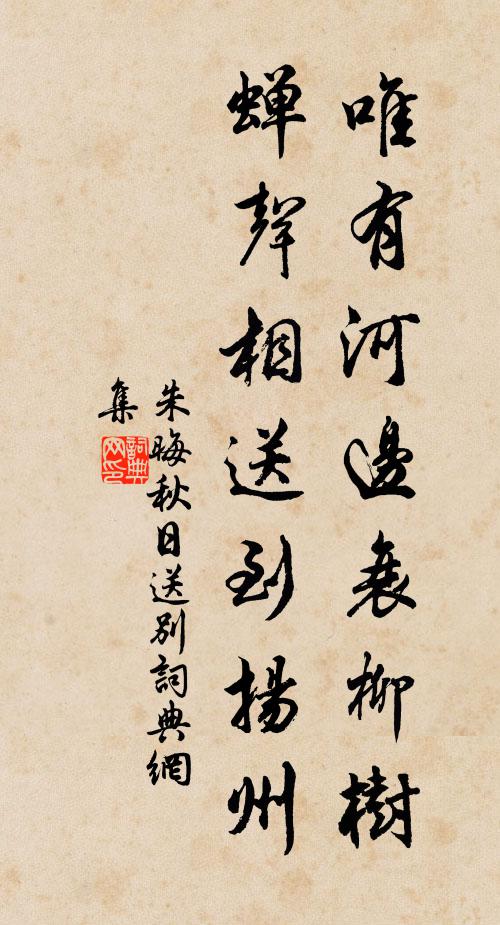 唯有河邊衰柳樹
蟬聲相送到揚州
朱晦秋日送別詞典網
集
詞典
网印